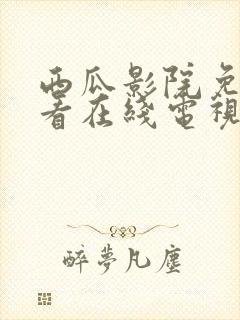 西瓜影院免
看在綫電視
醉夢凡塵